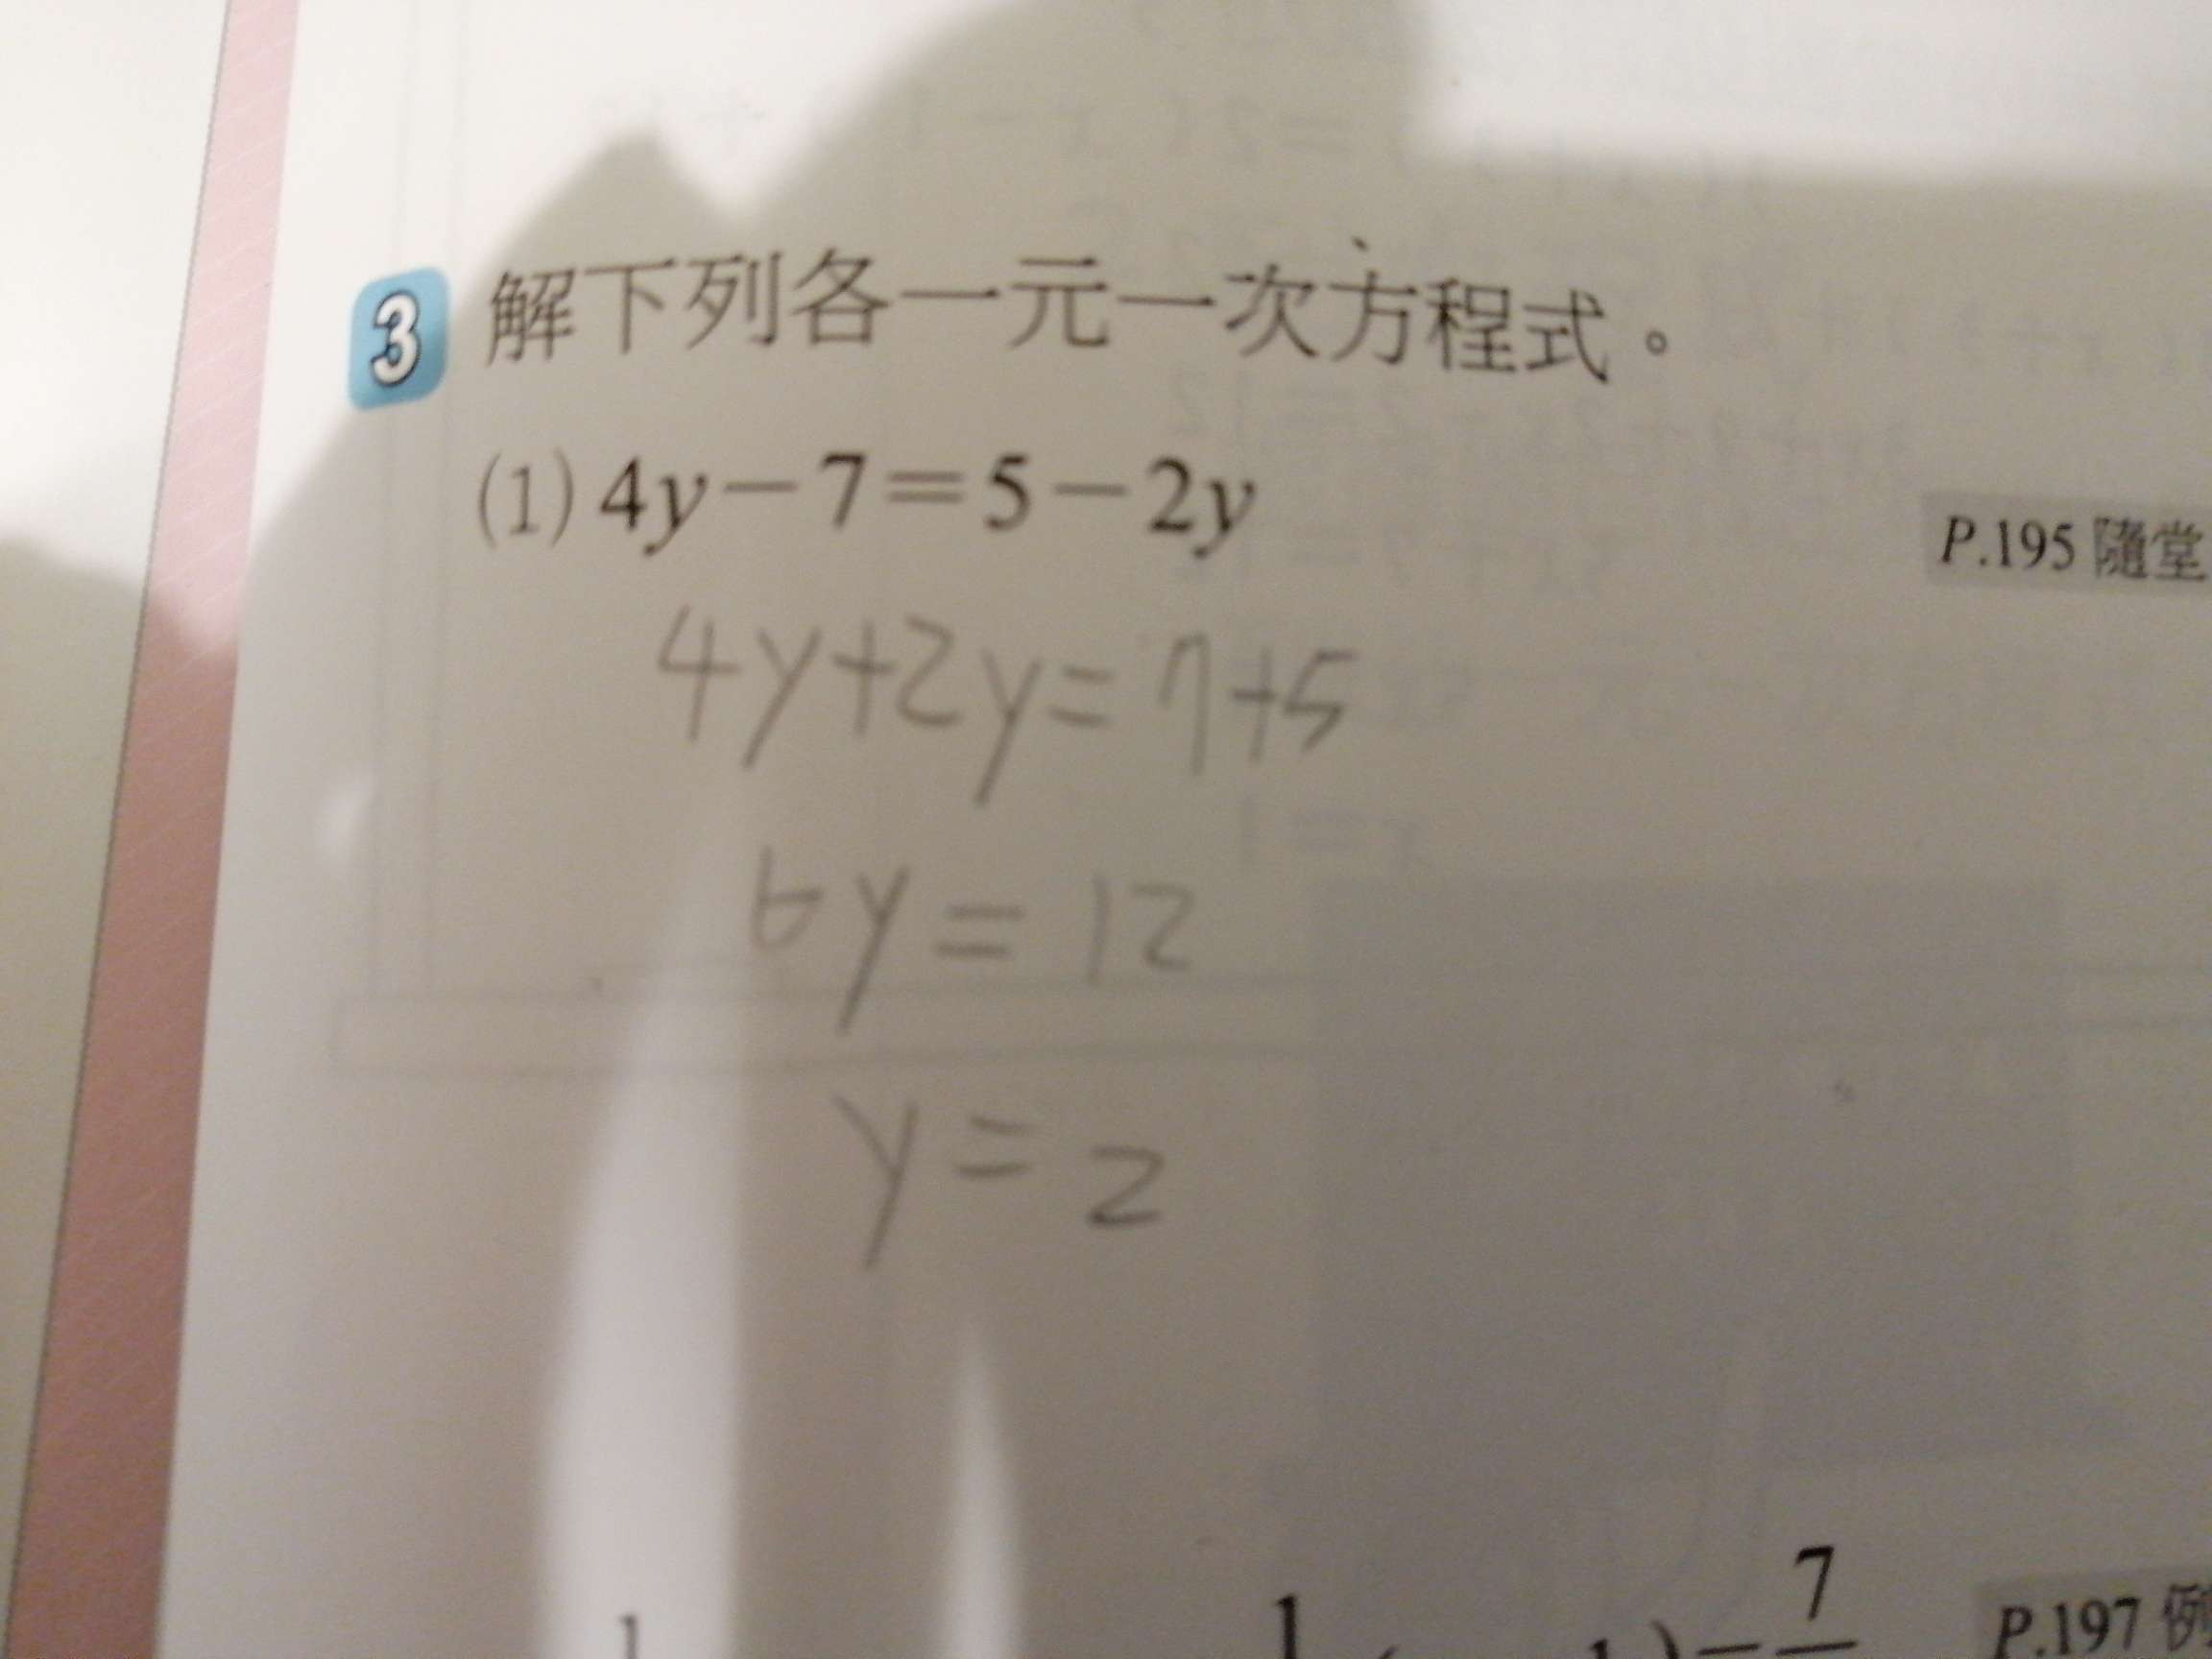 3 解下列各一元一次方程式。
(1) 4y－7＝5－2y
P.195 隨堂
4y+2y=7+5
6y=12
y=2
7
1
1
P.197 例